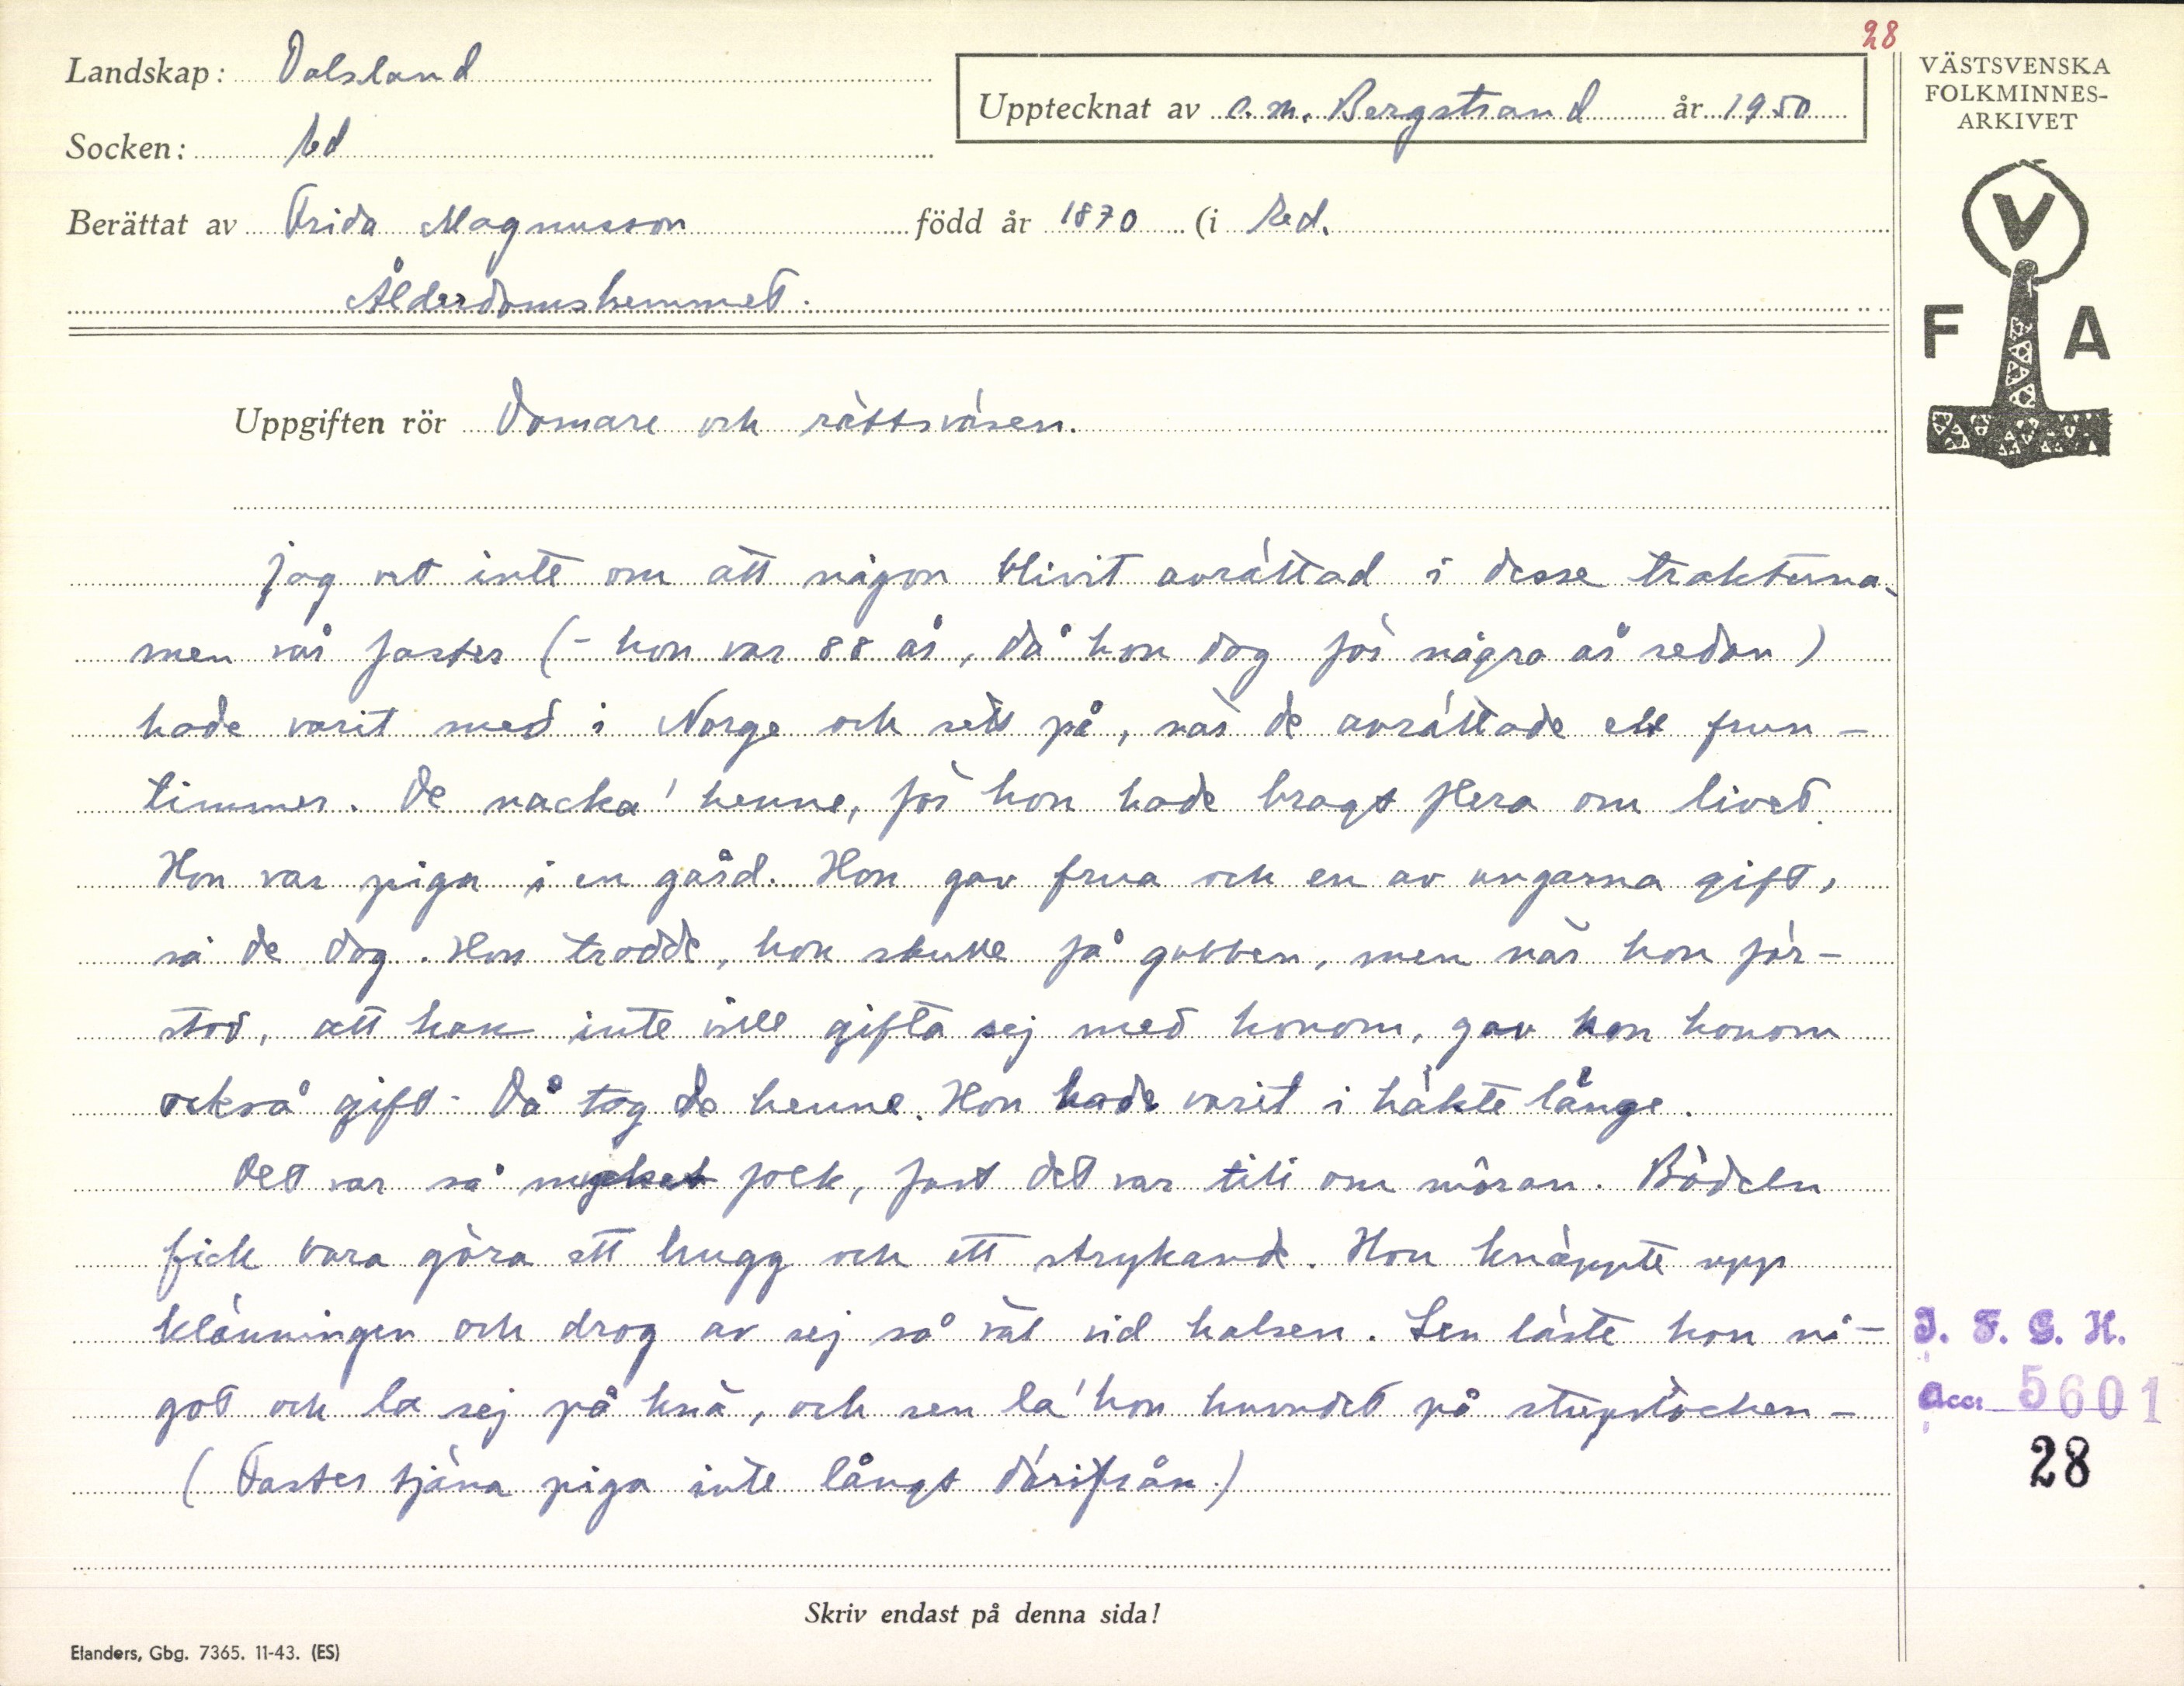 28
Landskap: Dalsland
Socken: Ed
Upptecknat av C.M. Bergstrand år 1950
Berättat av Frida Magnusson född år 1870 (i Ed.
Ålderdomshemmet.
VÄSTSVENSKA
FOLKMINNES-
ARKIVET
V
F A
Uppgiften rör Domare och rättsväsen.
Jag vet inte om att någon blivit avrättad i desse trakterna,
men vår faster (- hon var 88 år, då hon dog för några år sedan)
hade varit med i Norge och sett på, när de avrättade ett frun-
timmer. De nacka' henne, för hon hade bragt flera om livet.
Hon var piga i en gård. Hon gav frua och en av ungarna gift,
så de dog. Hon trodde, hon skulle få gubben, men när hon för-
stod, att han inte ville gifta sej med honom, gav hon honom
också gift. Då tog de henne. Hon hade varit i häkte länge.
Det var så mycket folk, fast det var titi om môran. Bödeln
fick bara göra ett hugg och ett strykande. Hon knäppte upp
klänningen och drog av sej så väl vid halsen. Sen läste hon nå-
got och la sej på knä, och sen la' hon huvudet på stupstocken -
(Faster tjäna piga inte långt därifrån.)
I. F. G. H.
Acc: 5601
28
Skriv endast på denna sida!
Elanders, Gbg. 7365. 11-43. (ES)